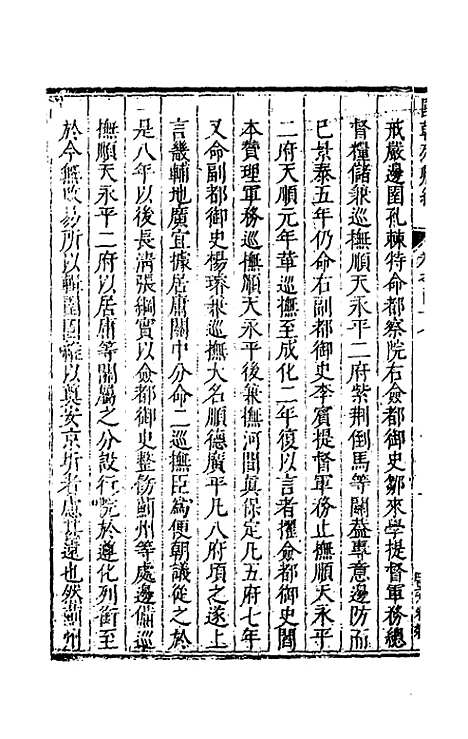 戒嚴邊圉孔棘特命都察院右僉都御史鄒來學提督軍務總
督糧儲兼巡撫順天永平二府紫荆倒馬等關葢專意邊防而
已景泰五年仍命右副都御史李賓提督軍務止撫順天永平
二府天順元年革巡撫至成化二年復以言者擢僉都御史閻
本贊理軍務巡撫順天永平後兼撫河間眞保定凡五府七年
又命副都御史楊璿兼巡撫大名順德廣平凡八府項之遂上
言畿輔地廣宜據居庸關中分命二巡撫臣爲便朝議從之於
是八年以後長淸張綱實以僉都御史整飭薊州等處邊備巡
撫順天永平二府以居庸等關屬之分設行院於遵化列銜至
於今無改易所以輯諡區㽦以奠安京所者慮其遠也然薊州